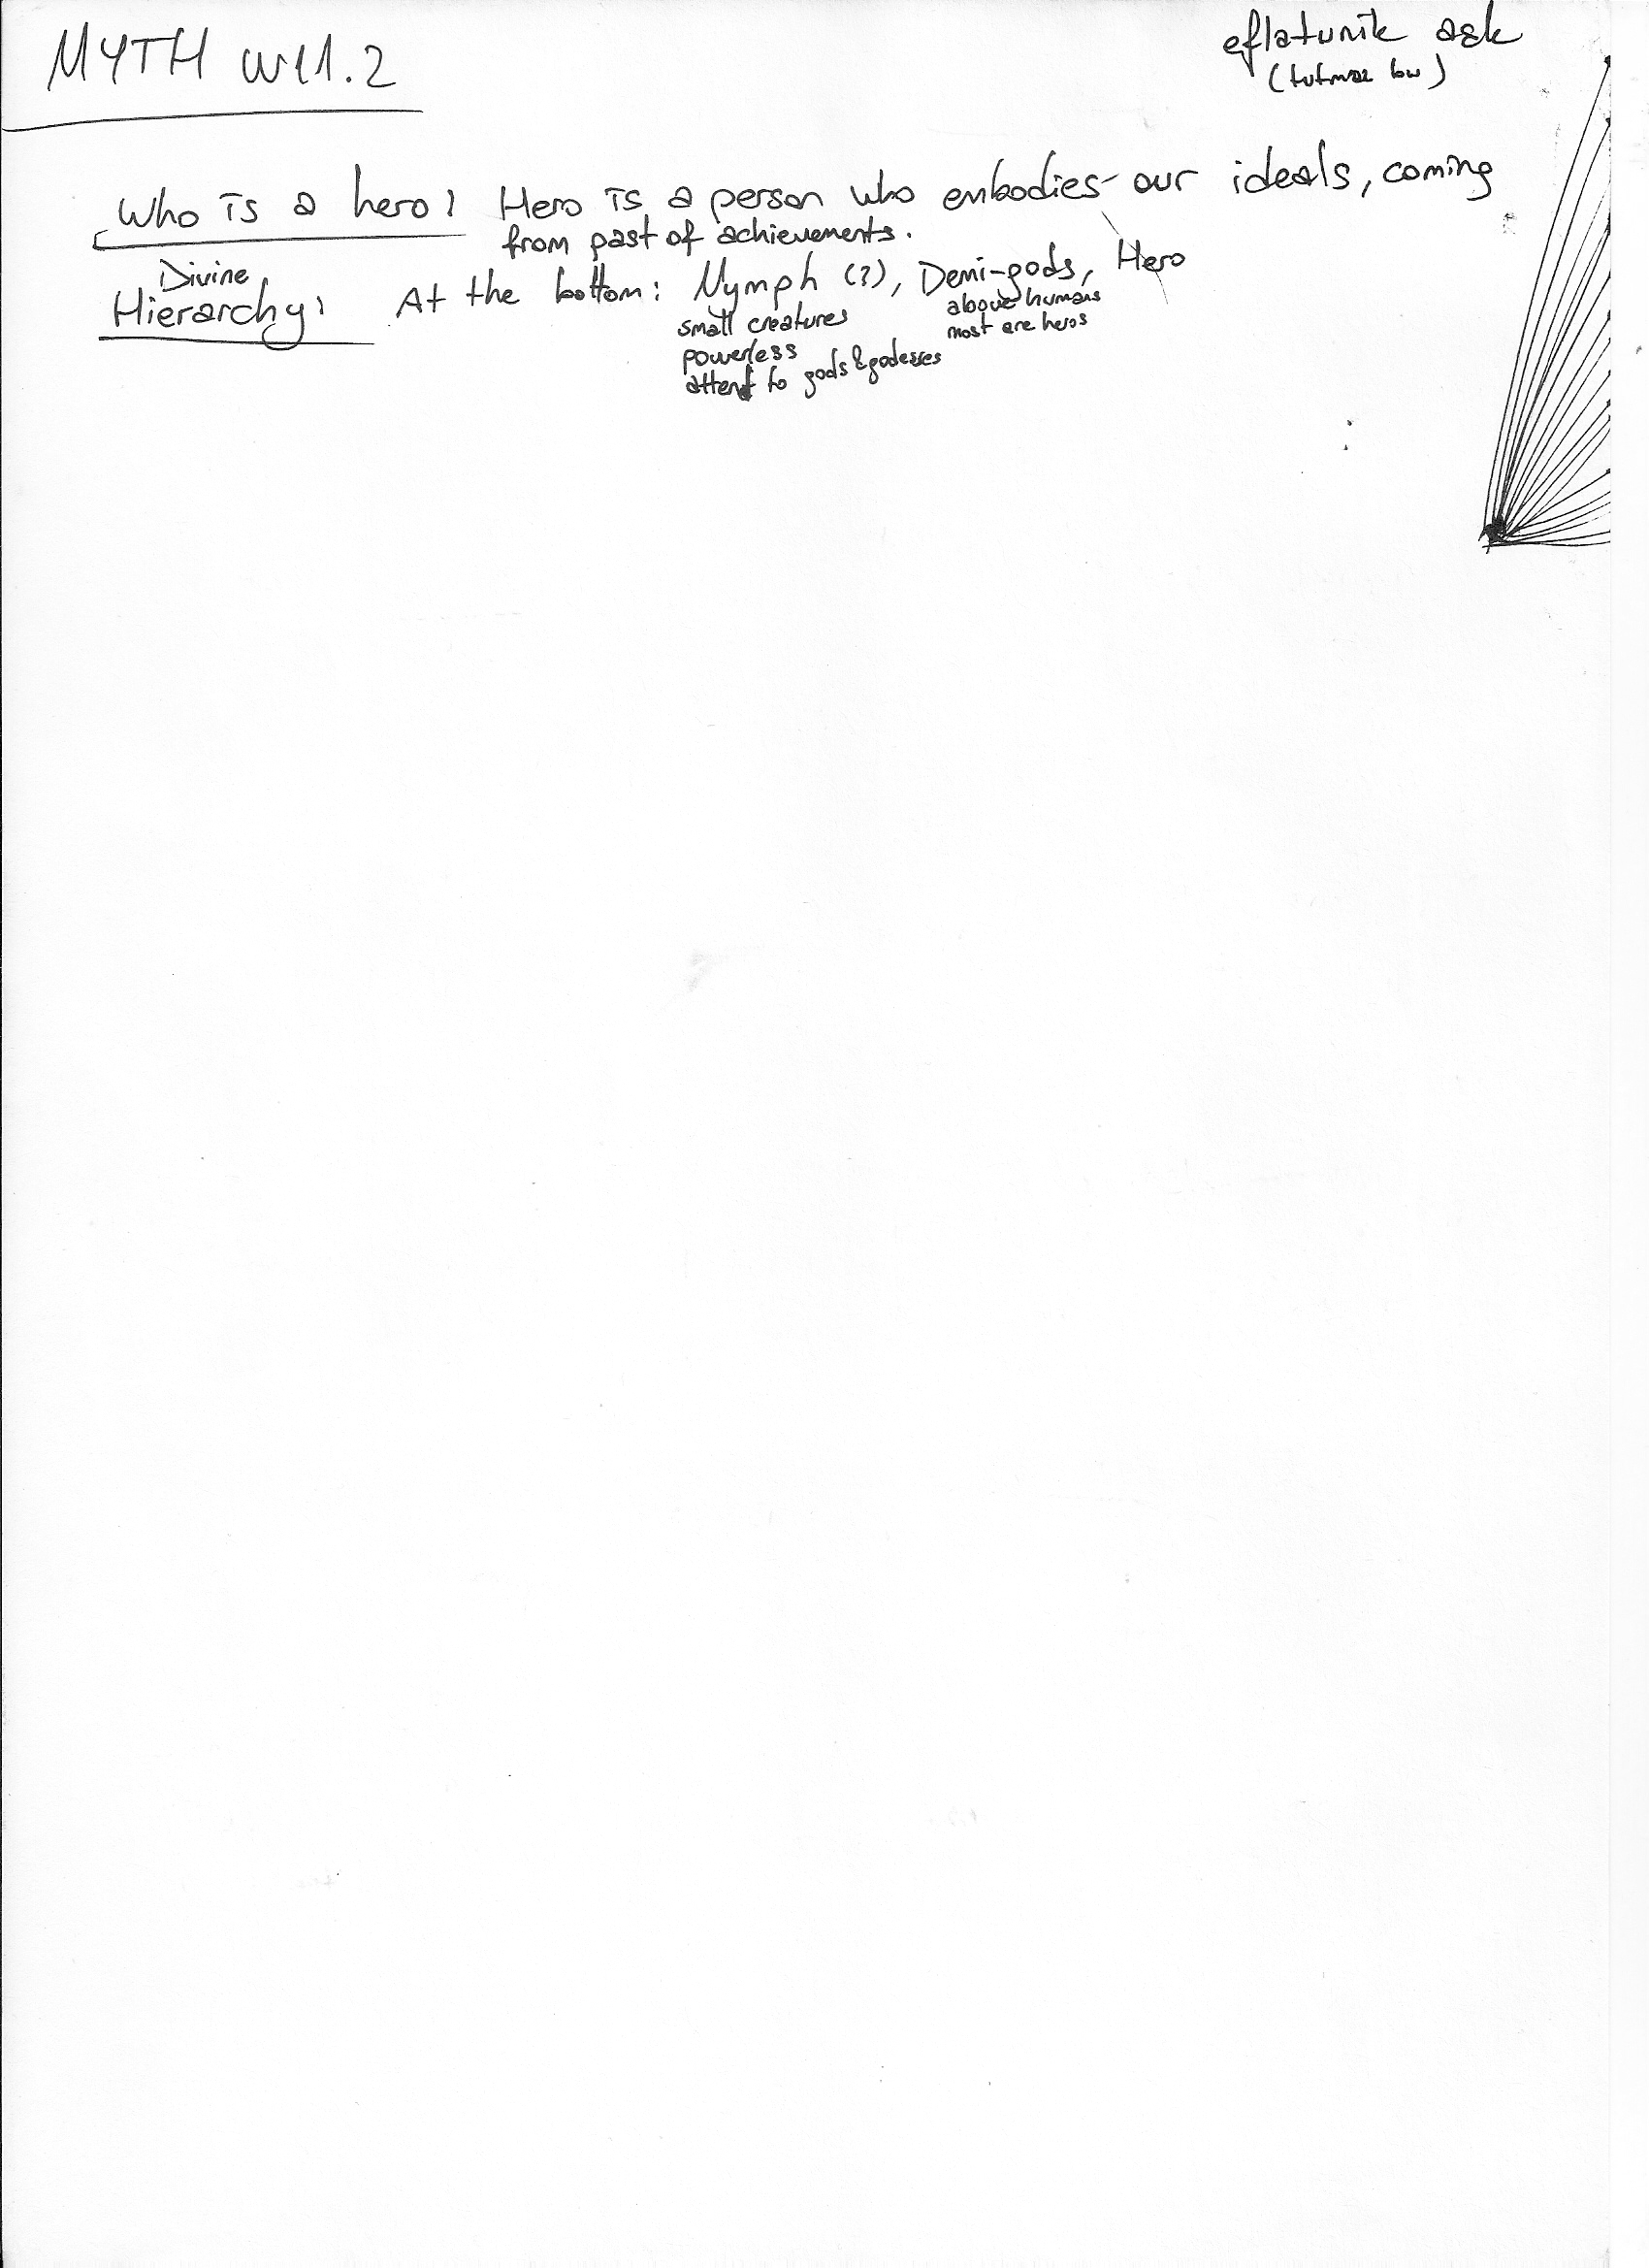 MYTH W11.2
eflatunik ask
(tutmaz bu)
Who is a hero? Hero is a person who embodies our ideals, coming
from past of achievements.
Divine
Hierarchy: At the bottom: Nymph (?), Demi-gods, Hero
small creatures
powerless
attend to gods & godesses
above humans
most are heros